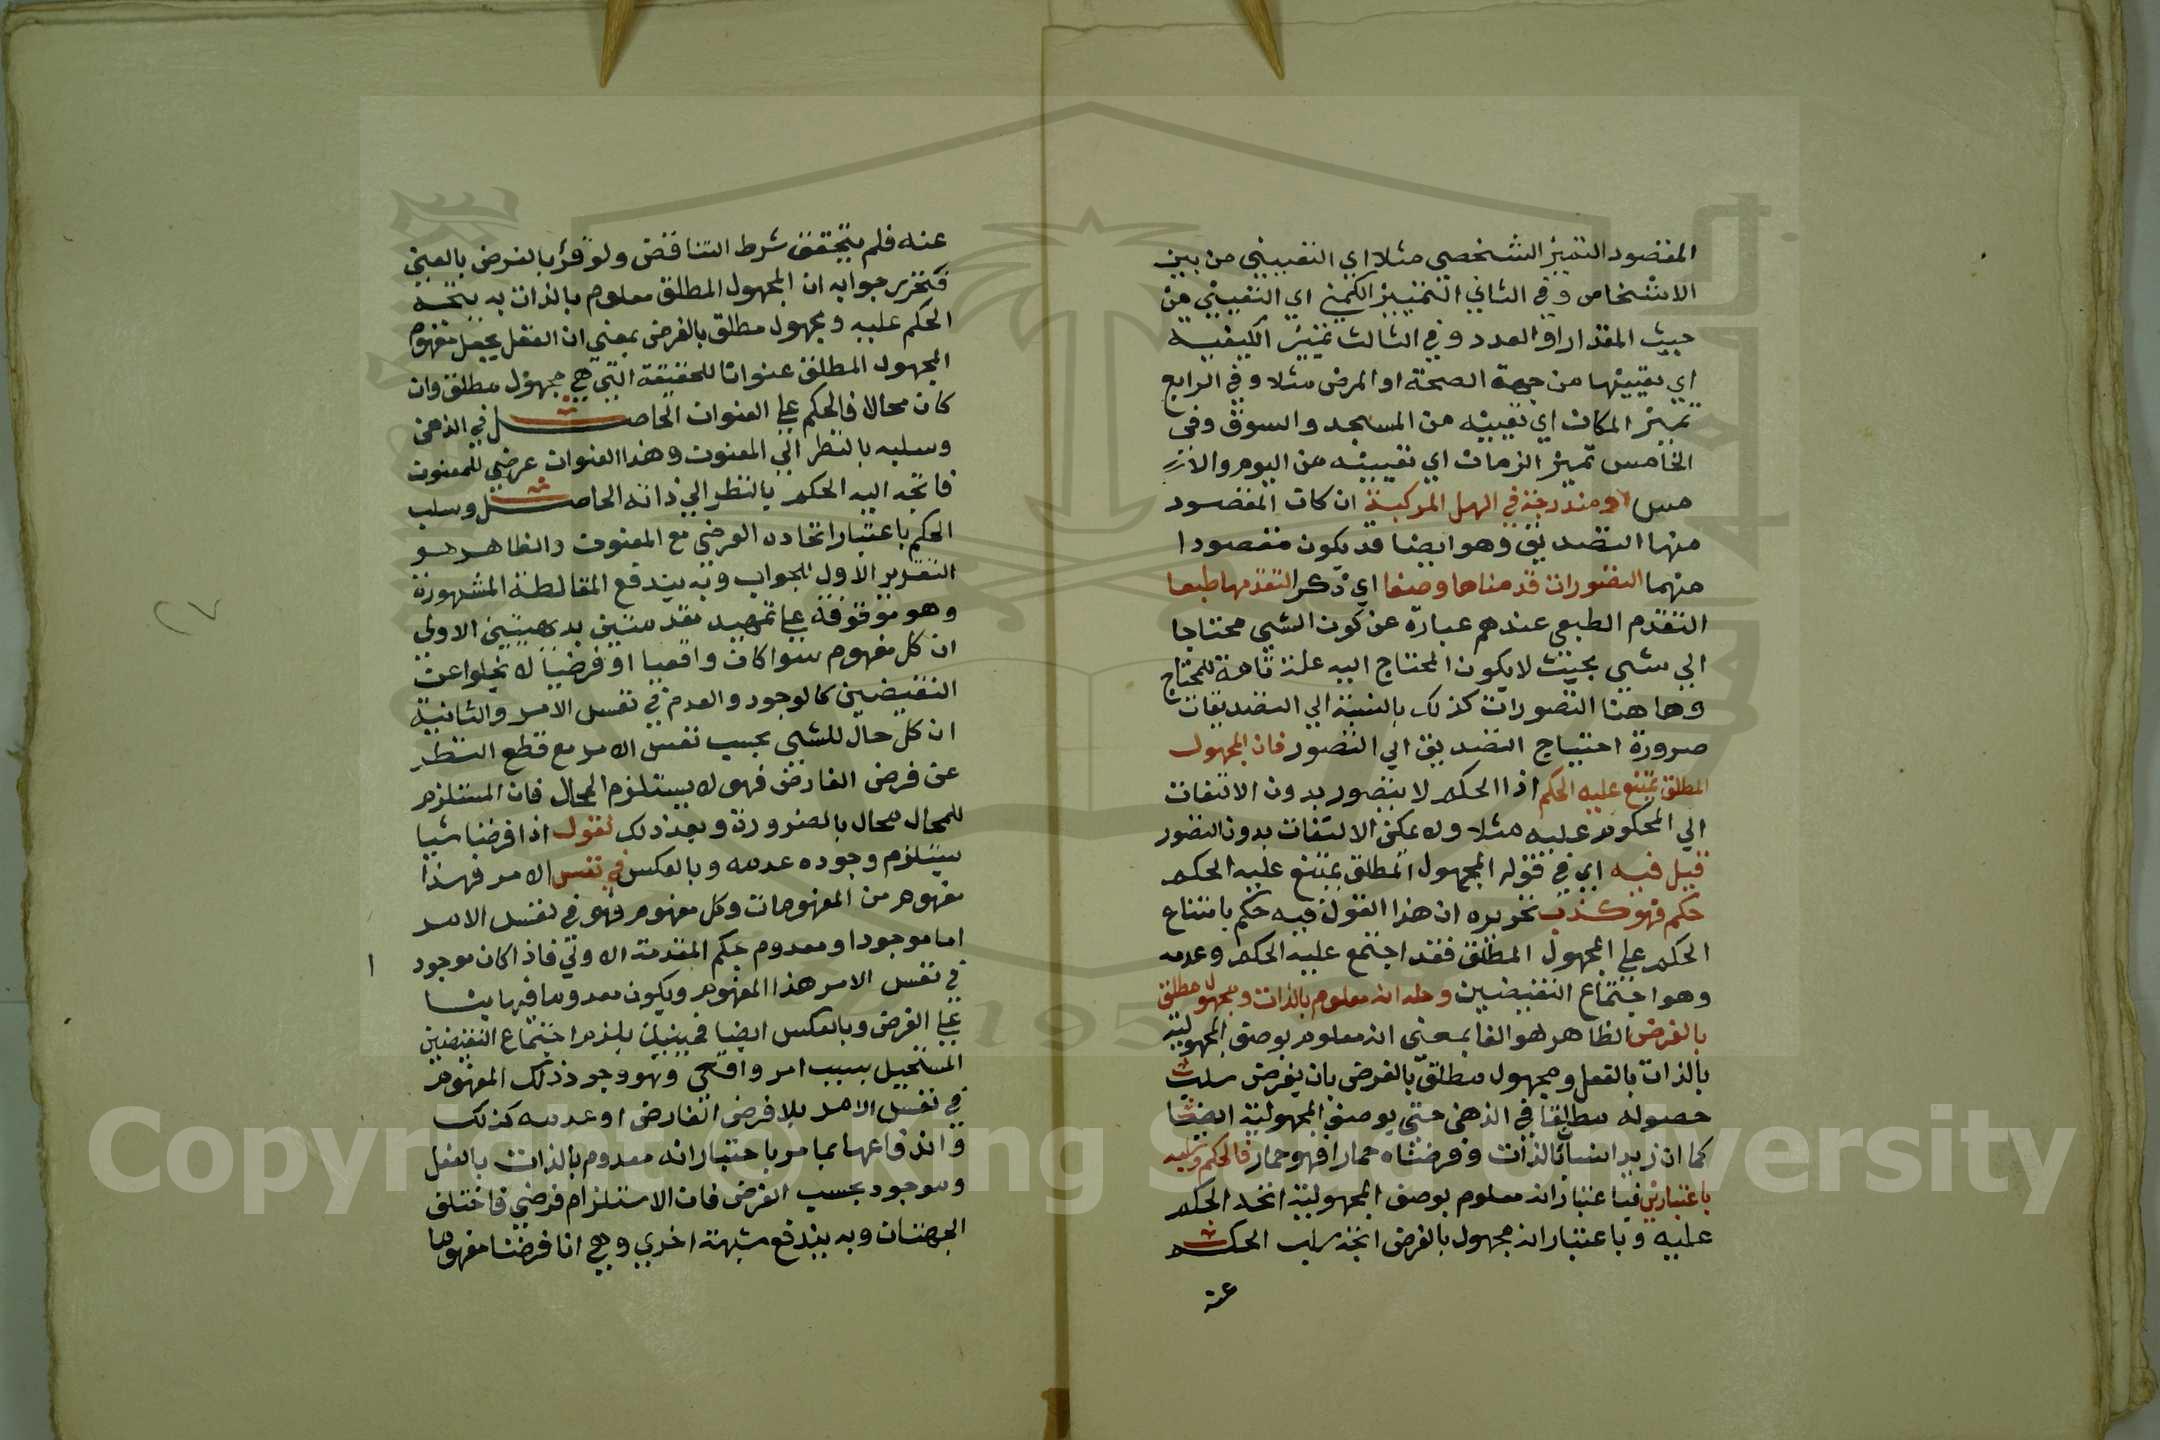 المقصود التميز الشخصي مثلا اي التقييني من بين
الاشخاص وفي الثاني التمييز الكمي اي التقييني من
حيث المقدار او العدد وفي الثالث تميز الكيفية
اي تقيينها من جهة الصحة او المرض مثلا وفي الرابع
تميز المكان اي تقيينه من المسجد والسوق وفي
الخامس تميز الزمان اي تقيينه من اليوم و
مس او مندرجة في الهل المركبة ان كان المقصود
منها التصديق وهو ايضا قد يكون مقصودا
منهما التصورات قدمناها وضعا اي ذكرا لتقدمها طبعا
التقدم الطبعي عندهم عبارة عن كون الشي محتاجا
الي شي بحيث لا يكون المحتاج اليه علة تامة للمحتاج
وها هنا التصورات كذلك بالنسبة الي التصديقات
ضرورة احتياج التصديق الي التصور فان المجهول
المطلق يمتنع عليه الحكم اذ الحكم لا يتصور بدون الالتفات
الي المحكوم عليه مثلا ولا يمكن الالتفات بدون التصور
قيل فيه اي في قوله المجهول المطلق يمتنع عليه الحكم
حكم فهو كذب تحريره ان هذا القول فيه حكم بامتناع
الحكم علي المجهول المطلق فقد اجتمع عليه الحكم وعدمه
وهو اجتماع النقيضين وحله انه معلوم بالذات ومجهول مطلق
بالفرض الظاهر هو الفا بمعني انه معلوم بوصف المجهولية
بالذات بالفعل ومجهول مطلق بالفرض بان يفرض سلب
حصوله مطلقا في الذهن حتي بوصف المجهولية ايضا
كما ان زيد انسان بالذات وفرضناه حمارا فهو حمار فالحكم وسلبه
باعتبارين فباعتبار انه معلوم بوصف المجهولية اتخد الحكم
عليه وباعتبار انه مجهول بالفرض اتخد سلب الحكم
عنه
عنه فلم يتحقق شرط التناقض ولو قرئ بالفرض بالعين
فتحرير جوابه ان المجهول المطلق معلوم بالذات به يتجه
الحكم عليه ومجهول مطلق بالفرض بمعني ان العقل يجعل مفهوم
المجهول المطلق عنوانا للحقيقة التي هي مجهول مطلق وان
كان محالا فالحكم علي العنوان الحاصل في الذهن
وسلبه بالنظر الي المعنون وهذا العنوان عرضي للمعنون
فاتجه اليه الحكم بالنظر الي ذاته الحاصل وسلب
الحكم باعتبار اتحاده العرضي مع المعنون والظاهر هو
التقرير الاول للجواب وبه يندفع المغالطة المشهورة
وهو موقوفة علي تمهيد مقدمتين بديهيتين الاولي
ان كل مفهوم سوا كان واقعيا او فرضيا لا يخلوا عن
النقيضين كالوجود والعدم في نفس الامر والثانية
ان كل حال للشي بحسب نفس الامر مع قطع النظر
عن فرض الفارض فهو لا يستلزم المحال فان المستلزم
للمحال محال بالضرورة وبعد ذلك نقول اذا فرضنا شيا
يستلزم وجوده عدمه وبالعكس في نفس الامر فهذا
مفهوم من المفهومات وكل مفهوم فهو في نفس الامر
اما موجود او معدوم بحكم المقدمة الاولي فاذا كان موجود
ا
في نفس الامر هذا المفهوم ويكون معدوما فيها بنا
علي الفرض وبالعكس ايضا فحينئذ يلزم اجتماع النقيضين
المستحيل بسبب امر واقعي وهو وجود ذلك المفهوم
في نفس الامر بلا فرض الفارض او عدمه كذلك
واندفاعها بما مر باعتبار انه معدوم بالذات بالفعل
وموجود بحسب الفرض فان الاستلزام فرضي فاختلف
الجهتان وبه يندفع شبهة اخري وهي انا فرضنا مفهوما
٢٧
Copyright © King Saud University
195